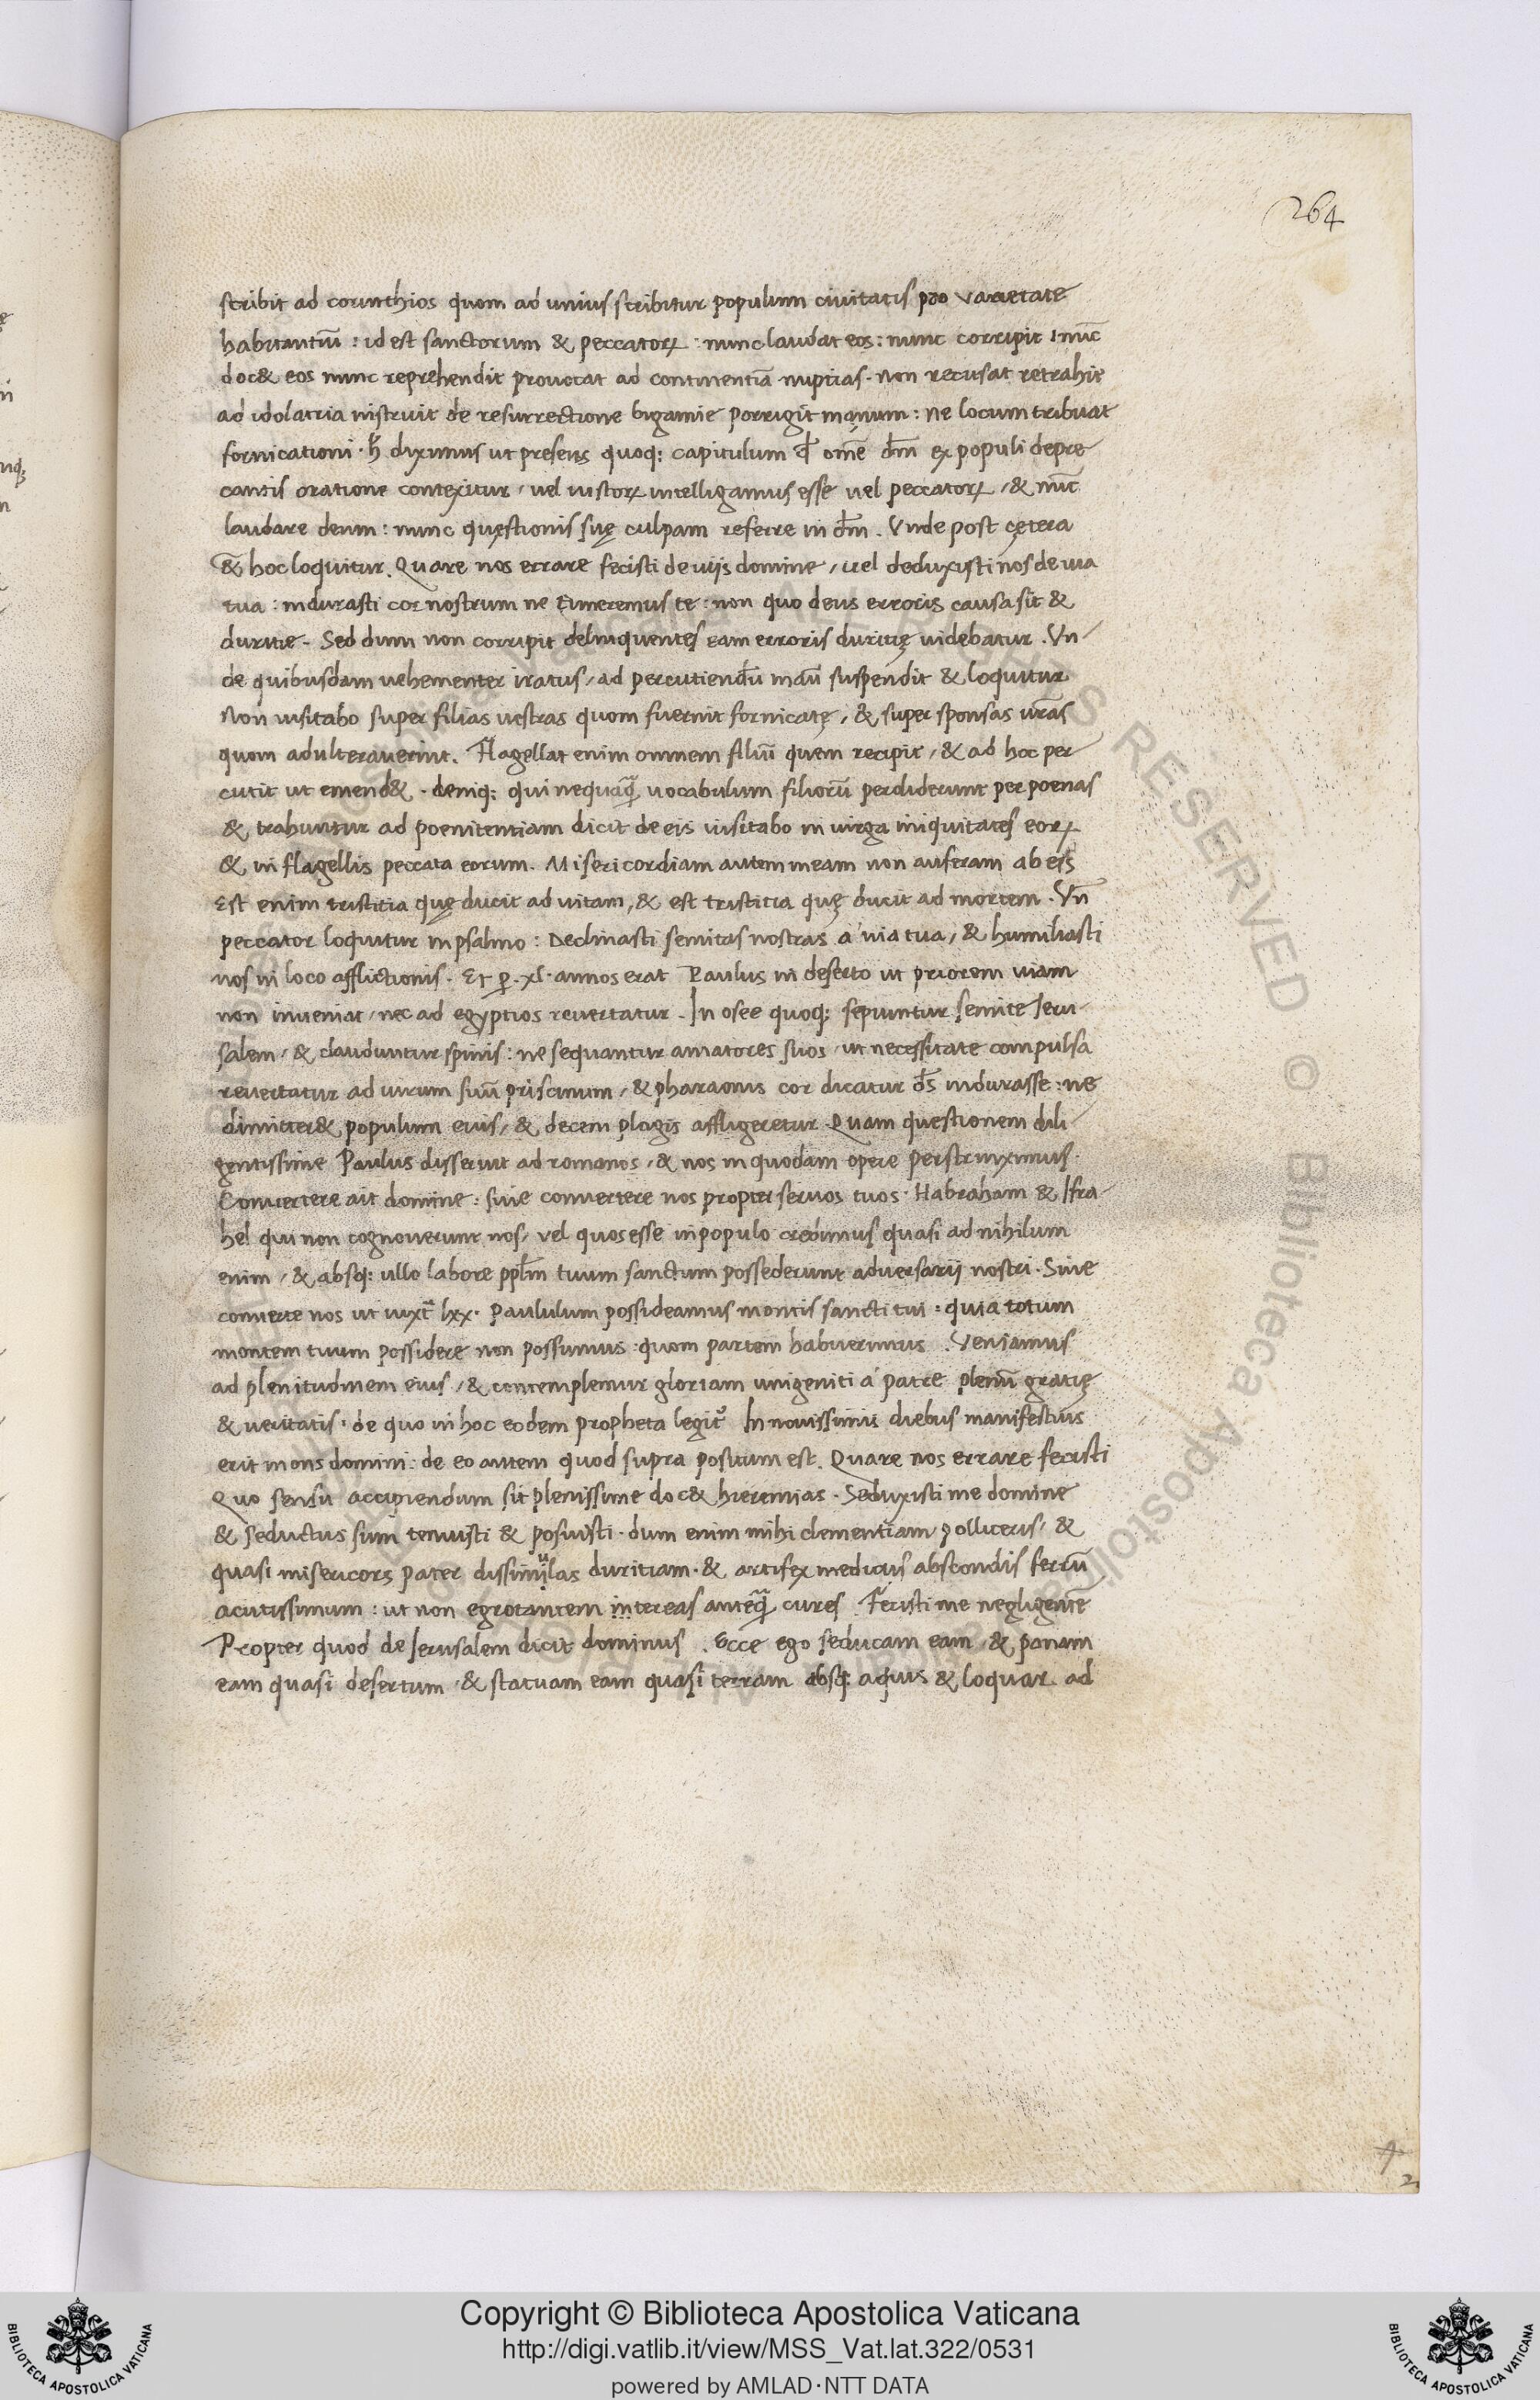 264
scribit ad corinthios quom ad unius scribitur populum ciuitatis pro varietate
habitantiū : id est sanctorum & peccatoꝝ : nunc laudat eos : nunc corripit : nūc
doc& eos nunc reprehendit prouocat ad continentiā nuptias . non recusat retrahit
ad idolatria instruit de resurrectione bigamie porrigit manum : ne locum tribuat
fornicationi . diximus ut presens quoq; capitulum omē dm̄ ex populi depre
cantis oratione contexitur / uel iustoꝝ intelligamus esse uel peccatoꝝ / & nūc
laudare deum : nunc quęstionis suę culpam referre in dm̄ . Vnde post cętera
& hoc loquitur . Quare nos errare fecisti de uiis domine / uel deduxisti nos de uia
tua : indurasti cor nostrum ne timeremus te : non quo deus erroris causa sit &
duritie . Sed dum non corripit delinquentes eam erroris duritię uidebatur . Vn/
de quibusdam uehementer iratus / ad percutiendū manū suspendit & loquitur
Non uisitabo super filias uestras quom fuerint fornicatę / & super sponsas vr̄as
quom adulterauerint . Flagellat enim omnem filiū quem recipit / & ad hoc per
cutit ut emend& . deniq; qui nequaꝗ̄ uocabulum filiorū perdiderunt per poenas
& trahuntur ad poenitentiam dicit de eis uisitabo in uirga iniquitates eoꝝ
& in flagellis peccata eorum . Misericordiam autem meam non auferam ab eis
Est enim tristitia quę ducit ad uitam , & est tristitia quę ducit ad mortem . Vn̄
peccator loquitur in psalmo : Declinasti semitas nostras a uia tua / & humiliasti
nos in loco afflictionis . Et ꝑ . xl . annos erat Paulus in deserto ut priorem uiam
non inueniat / nec ad egyptios reuertatur . In osee quoq; sepiuntur semite Ieru/
salem / & clauduntur spinis : ne sequantur amatores suos / ut necessitate compulsa
reuertatur ad uirum suū priscinum / & pharaonis cor dicatur ds̄ indurasse : ne
dimitter& populum eius / & decem plagis affligeretur . Quam questionem dili/
gentissime Paulus disseruit ad romanos / & nos in quodam opere perstrinximus .
Conuertere ait domine : siue conuertere nos propter seruos tuos . Habraham & Isra/
hel qui non cognouerunt nos / vel quos esse in populo credimus quasi ad nihilum
enim / & absq; ullo labore ppl̄m tuum sanctum possederunt aduersarii nostri . Siue
conuerte nos ut iuxt̄ lxx . paululum possideamus montis sancti tui : quia totum
montem tuum possidere non possumus : quom partem habuerimus . Veniamus
ad plenitudinem eius / & contemplemur gloriam unigeniti a patre plenū gratię
& ueritatis . de quo in hoc eodem propheta legit In nouissimis diebus manifestius
erit mons domini : de eo autem quod supra positum est . Quare nos errare fecisti
Quo sensu accipiendum sit plenissime doc& hieremias . Seduxisti me domine
& seductus sum tenuisti & posuisti . dum enim mihi clementiam polliceris / &
quasi misericors pater dissimulas duritiam . & artifex medicus abscondis ferrū
acutissimum : ut non egrotantem intereas anteꝗ̄ cures Fecisti me negligentē
Propter quod de Ierusalem dicit dominus . Ecce ego seducam eam / & ponam
eam quasi desertum . & statuam eam quasi terram absq; aquis & loquar ad
Copyright © Biblioteca Apostolica Vaticana
http://digi.vatlib.it/view/MSS_Vat.lat.322/0531
powered by AMLAD·NTT DATA